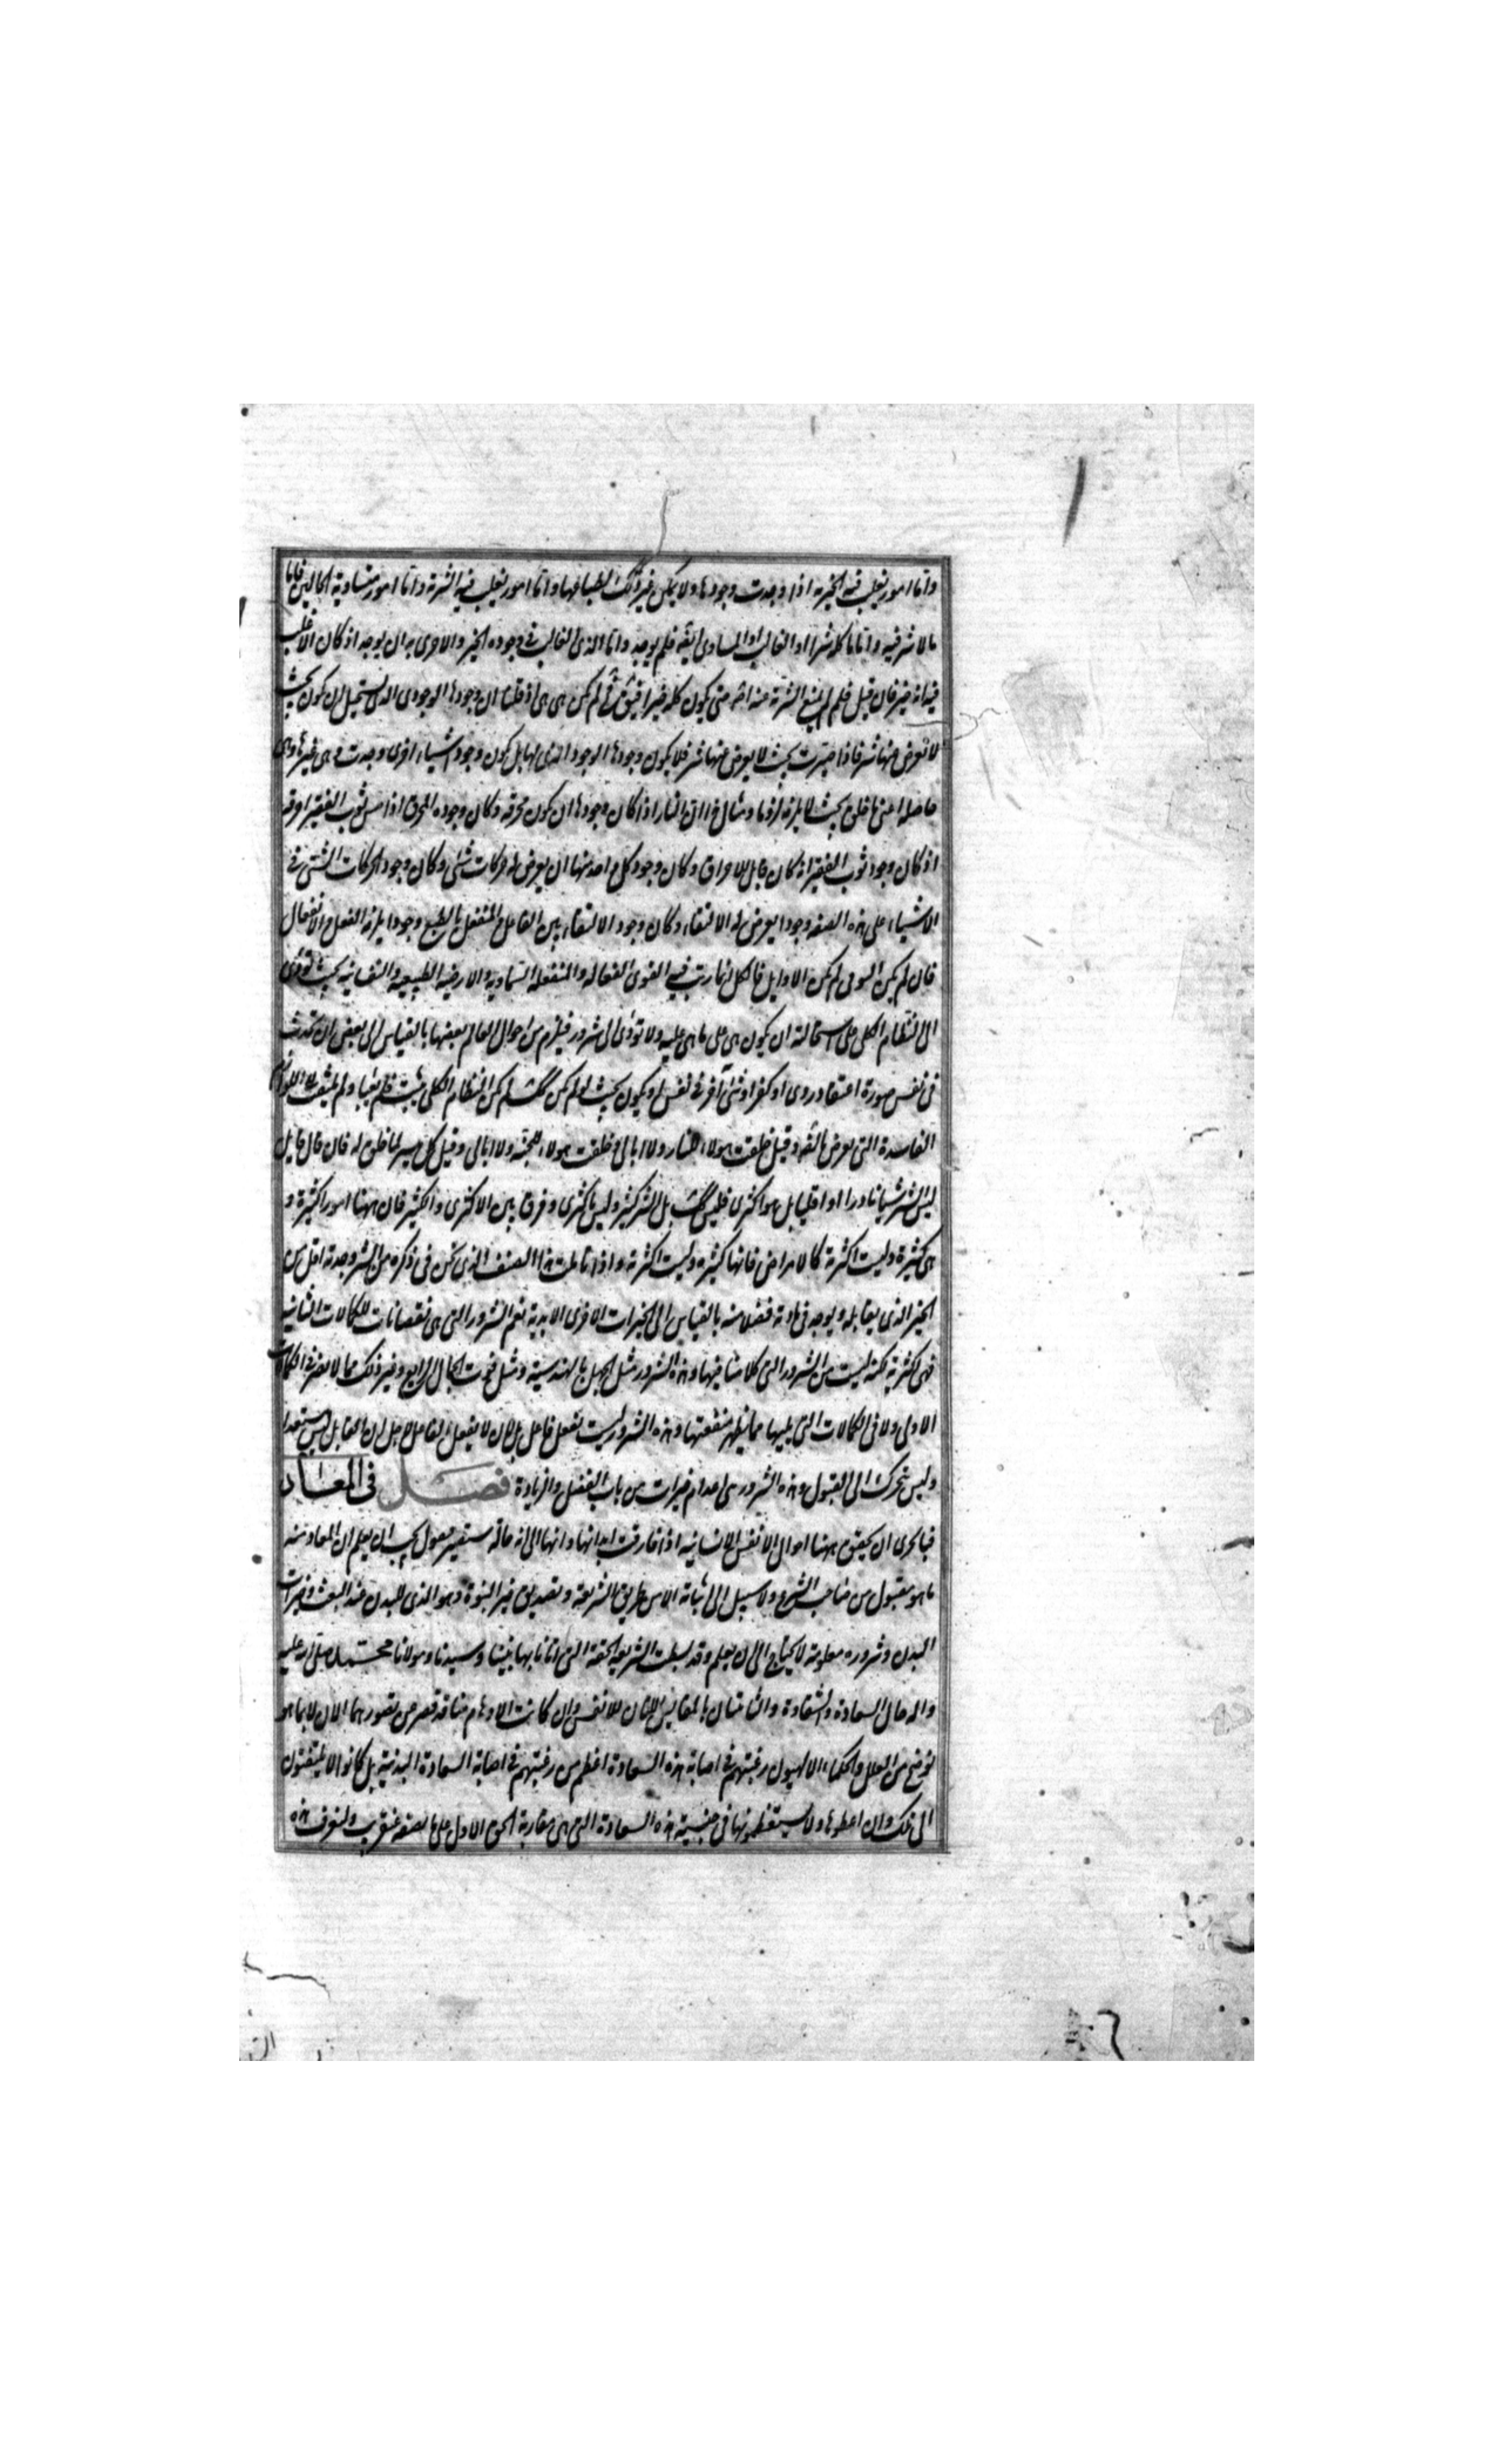 واما امور تغلب فيه الخيرية اذا وجدت وجودها ولا يمكن غير ذلك لطباعها واما امور تغلب فيه الشرية واما امور متساوية الحالين فاما
ما لا شر فيه واما ما كله شر او الغالب او المساوى ايضا فلم يوجد واما الذى الغالب فى وجوده الخير والاحرى به ان يوجد اذ كان الاغلب
فيه انه خير فان قيل فلم لم يمنع الشرية عنه اصلا حتى يكون كله خيرا فيق فح لم يكن هى هى اذ قلنا ان وجودها الوجودى الذى يستحيل ان يكون بحيث
لا تعرض منها شر فاذا صيرت بحيث لا يعرض عنها شر فلا يكون وجودها الوجود الذى لها بل يكون وجود اشياء اخرى وجدت وهى غيرها وهى
حاصله اعنى ما خلق بحيث لا يلزمه لزوما ومثال هذا ان النار اذا كان وجودها ان يكون محرقه وكان وجوده المحرق اذا مس ثوب الفقير احرقه
اذ كان وجود ثوب الفقير انه كان قابل للاحراق وكان وجود كل واحد منها ان يعرض له حركات شتى وكان وجود الحركات الشتى فى
الاشياء على هذه الصفة وجودا يعرض له الالتقاء وكان وجود الالتقاء بين الفاعل والمنفعل بالطبع وجودا يلزمه الفعل والانفعال
فان لم يكن الثوانى لم يكن الاوايل فالكل انما رتب فيه القوى الفعالة والمنفعله السماويه والارضيه الطبيعيه والنفسانيه بحيث تؤدى
الى النظام الكلى على استحالة ان يكون هى على ما هى عليه ولا تؤدى الى شرور فيلزم من احوال العالم بعضها بالقياس الى بعض ان يحدث
فى نفس صورة اعتقاد ردى او كفر او شئ آخر فى نفس او يكون بحيث لو لم يكن كذلك لم يكن النظام الكلى يثبت فلم يعبا ولم يلتفت الى اللوازم
الفاسدة التى يعرض بالضرورة وقيل خلقت هولاء للنار ولا ابالى وخلقت هولاء للجنة ولا ابالى وقيل كل ميسر لما خلق له فان قال قايل
ليس الشر شيئا نادرا او اقليا بل هو اكثرى فليس كذلك بل الشر كثير وليس باكثرى وفرق بين الاكثرى والكثير فان ههنا امورا كثيرة و
هى كثيرة وليست اكثرية كالامراض فانها كثيره وليست اكثرية واذا تاملت هذا الصنف الذى نحن فى ذكره من الشر وجدته اقل من
الخير الذى يقابله ويوجد فى مادته فضلا منه بالقياس الى الخيرات الاخرى الابدية نعم الشرور التى هى نقصانات للكمالات الثانيه
فهى اكثرية لكنه ليست من الشرور التى كلامنا فيها وهذه الشرور مثل الجهل بالهندسية ومثل فوت الجمال الرايع وغير ذلك مما لا يضر فى الكمالات
الاولى ولا فى الكمالات التى يليها مما يظهر منفعتها وهذه الشرور ليست بفعل فاعل بل لان لا يفعل الفاعل لاجل ان القابل ليس مستعدا
وليس يتحرك الى القبول وهذه الشرور هى اعدام خيرات من باب الفضل والزيادة فصل فى المعاد
فبالحرى ان يحقق ههنا احوال الانفس الانسانيه اذا فارقت ابدانها وانها الى اية حالة ستصير فيقول يجب ان يعلم ان المعاد منه
ما هو مقبول من صاحب الشرع ولا سبيل الى اثباته الا من طريق الشريعة وتصديق خبر النبوة وهو الذى للبدن عند البعث وخيرات
البدن وشروره معلومة لا يحتاج الى ان يعلم وقد بسطت الشريعة الحقة التى اتانا بها نبينا وسيدنا ومولانا محمد صلى الله عليه
واله حال السعادة والشقاوة والثابتتان بالمقاييس اللتان للانفس وان كانت الاوهام منا قد تقصر من تصورهما الان لما هو
توضح من العلل والحكماء الالهيون رغبتهم فى اصابة هذه السعادة اعظم من رغبتهم فى اصابة السعادة البدنية بل كانوا لا يلتفتون
الى تلك وان اعطوها ولا يستعظمونها فى جنبة هذه السعادة التى هى مقاربة الحق الاول على ما نصفه عنقريب ولنعرف هذه